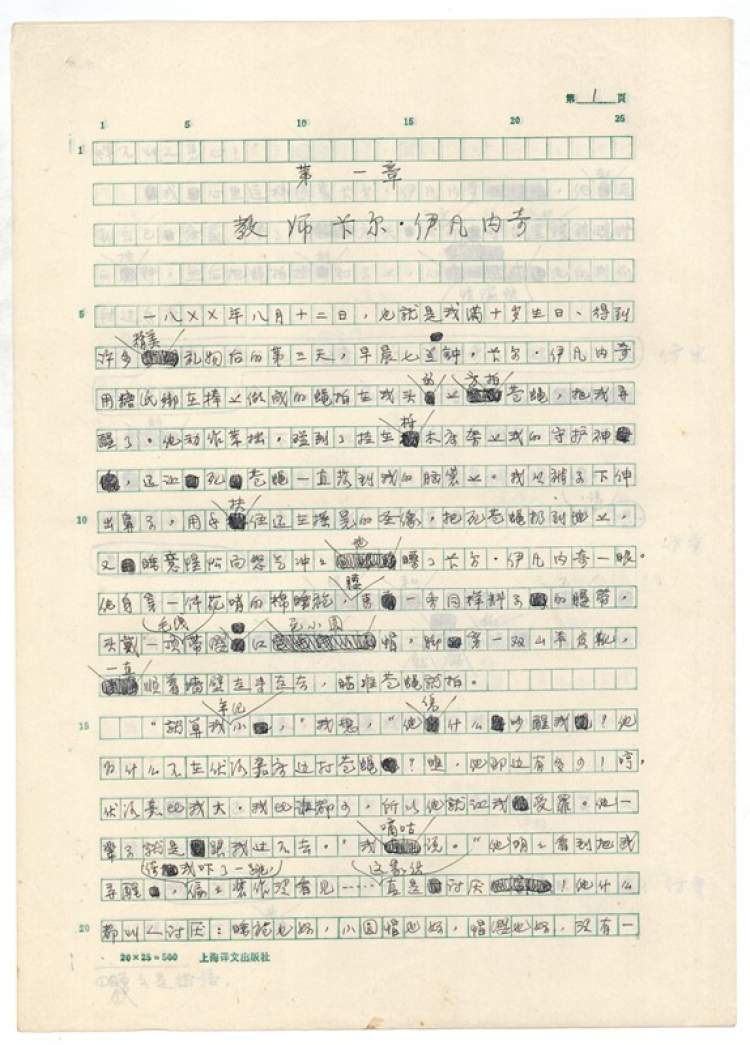 第 1 页
1 5 10 15 20 25
1
第一章
教师卡尔·伊凡内奇
5 一八××年八月十二日，也就是我满十岁生日、得到
许多精美礼物后的第三天，早晨七点钟，卡尔·伊凡内奇
用糖纸绑在棒上做成的蝇拍在我头上方拍苍蝇，把我弄
醒了。他动作笨拙，碰到了挂在柞木床架上我的守护神
，还让死苍蝇一直落到我的脑袋上。我从被子下伸
10 出鼻子，用手扶住还在摇晃的圣像，把死苍蝇扔到地上，
又睡意惺忪而怒气冲冲地瞪了卡尔·伊凡内奇一眼。
他身穿一件花哨的棉睡袍，腰一条同样料子的腰带，
头戴一顶带缨红毛线小圆帽，脚穿一双山羊皮靴，
一直顺着墙壁走来走去，瞄准苍蝇就拍。
15 “就算我年纪小，”我想，“他为什么吵醒我？他
为什么不在伏洛嘉旁边打苍蝇？瞧，他那边有多少！哼，
伏洛嘉比我大，我比谁都小，所以他就让我受罪。他一
辈子就是跟我过不去。”我嘀咕说。“他明明看到把我
弄醒，使我吓了一跳，偏偏装作没看见……真是讨厌这家伙！他什么
20 都叫人讨厌：睡袍也好，小圆帽也好，帽缨也好，没有一
20×25=500 上海译文出版社